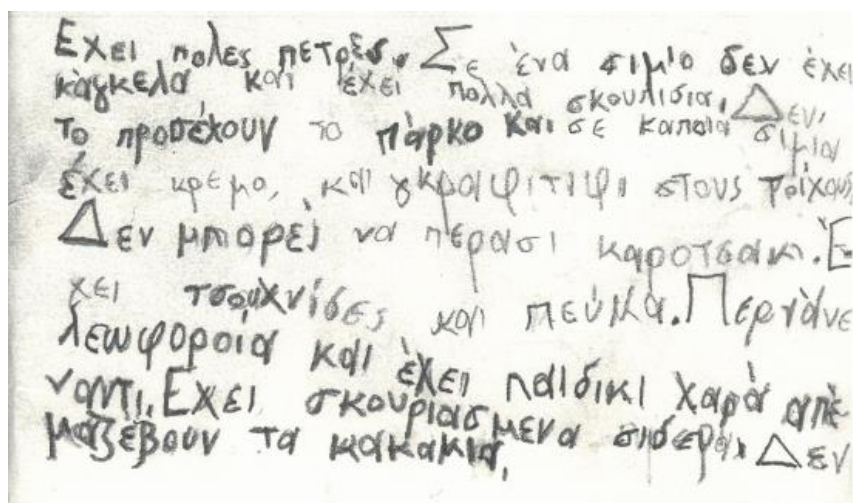 Εχει πολες πετρες. Σε ένα σιμιο δεν έχει
κάγκελα, και έχει πολλά σκουπισια. Δεν
το προσέχουν το πάρκο και σε καποια σιμια
έχει κρεμο, και γκραφιτιφι στους τοίχους.
Δεν μπορεί να περασι καροτσακι. Έ
χει τσουχνίδες και πεύκα. Περνάνε
λεωφορσία και έχει παιδικι χαρά απέ
ναντι. Εχει σκουριασμενα σιδερα. Δεν
μαζεβουν τα κακακια.